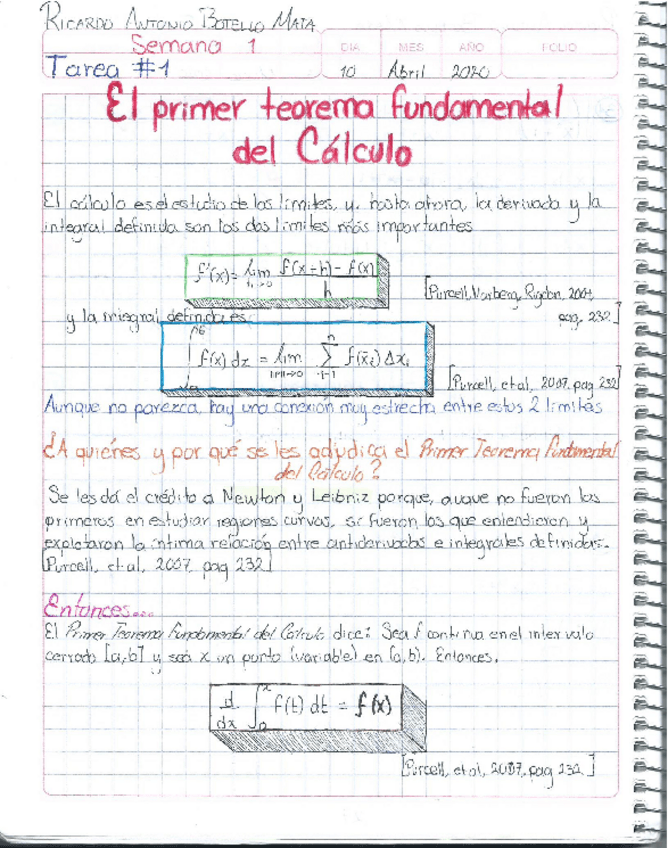 RICARDO ANTONIO BOTELLO MATA
Semana 1
DIA MES AÑO FOLIO
Tarea #1
10 Abril 2020
El primer teorema fundamental
del Cálculo
El cálculo es el estudio de los límites, y, hasta ahora, la derivada y la
integral definida son los dos límites más importantes
f'(x) = lim h→0 f(x+h) - f(x) / h
[Purcell, Varberg, Rigdon, 2007,
pag, 232]
y la integral definida es
∫ₐᵇ f(x) dx = lim ||P||→0 ∑ⁿ i=1 f(x̄ᵢ) Δxᵢ
[Purcell, et al, 2007, pag 232]
Aunque no parezca, hay una conexión muy estrecha entre estos 2 límites
¿A quiénes y por qué se les adjudica el Primer Teorema Fundamental
del Cálculo?
Se les dá el crédito a Newton y Leibniz porque, auque no fueron los
primeros en estudiar regiones curvas, si fueron los que entendieron y
explotaron la íntima relación entre antiderivadas e integrales definidas.
[Purcell, et al, 2007, pag 232]
Entonces...
El Primer Teorema Fundamental del Cálculo dice: Sea f continua en el intervalo
cerrado [a,b] y sea x un punto (variable) en (a,b). Entonces,
d/dx ∫ₐˣ f(t) dt = f(x)
[Purcell, et al, 2007, pag 232]